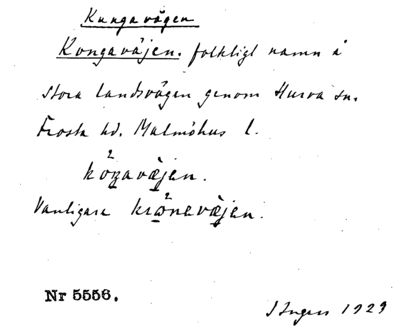 Kungavägen
Kongaväjen. folkligt namn å
stora landsvägen genom Hurva sn.
Frosta hd. Malmöhus l.
Vanligare
Nr 5556.
Ingers 1929